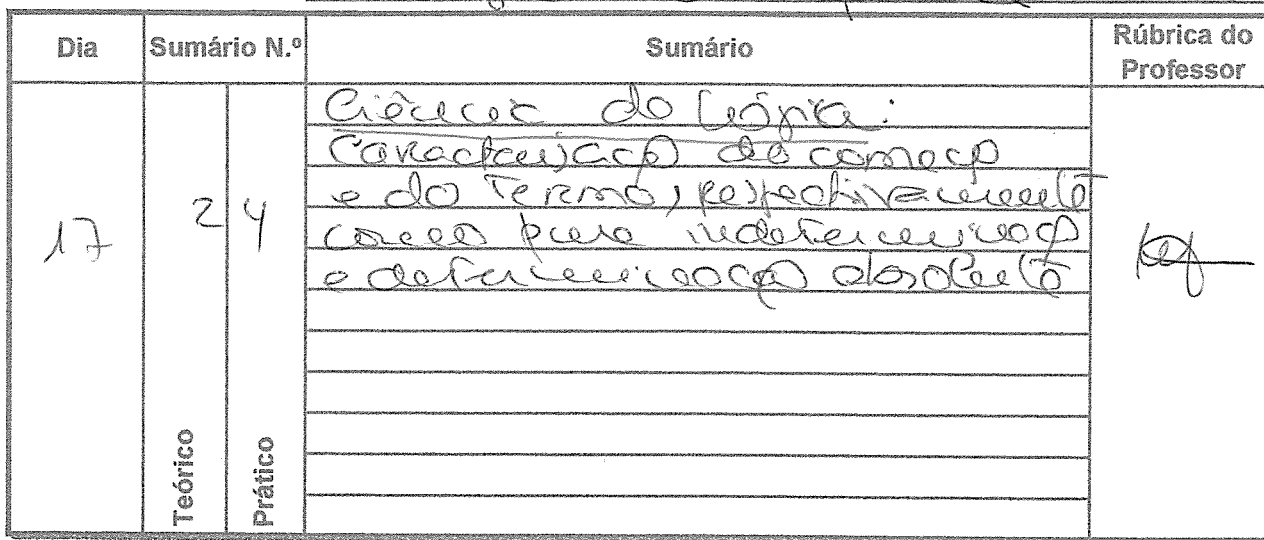 Dia Sumário N.º Sumário Rúbrica do Professor
17 2 4
Ciência da Lógica:
Caracterização do começo
e do Termo, respectivamente
como pura indeterminação
e determinação absoluta
Teórico Prático